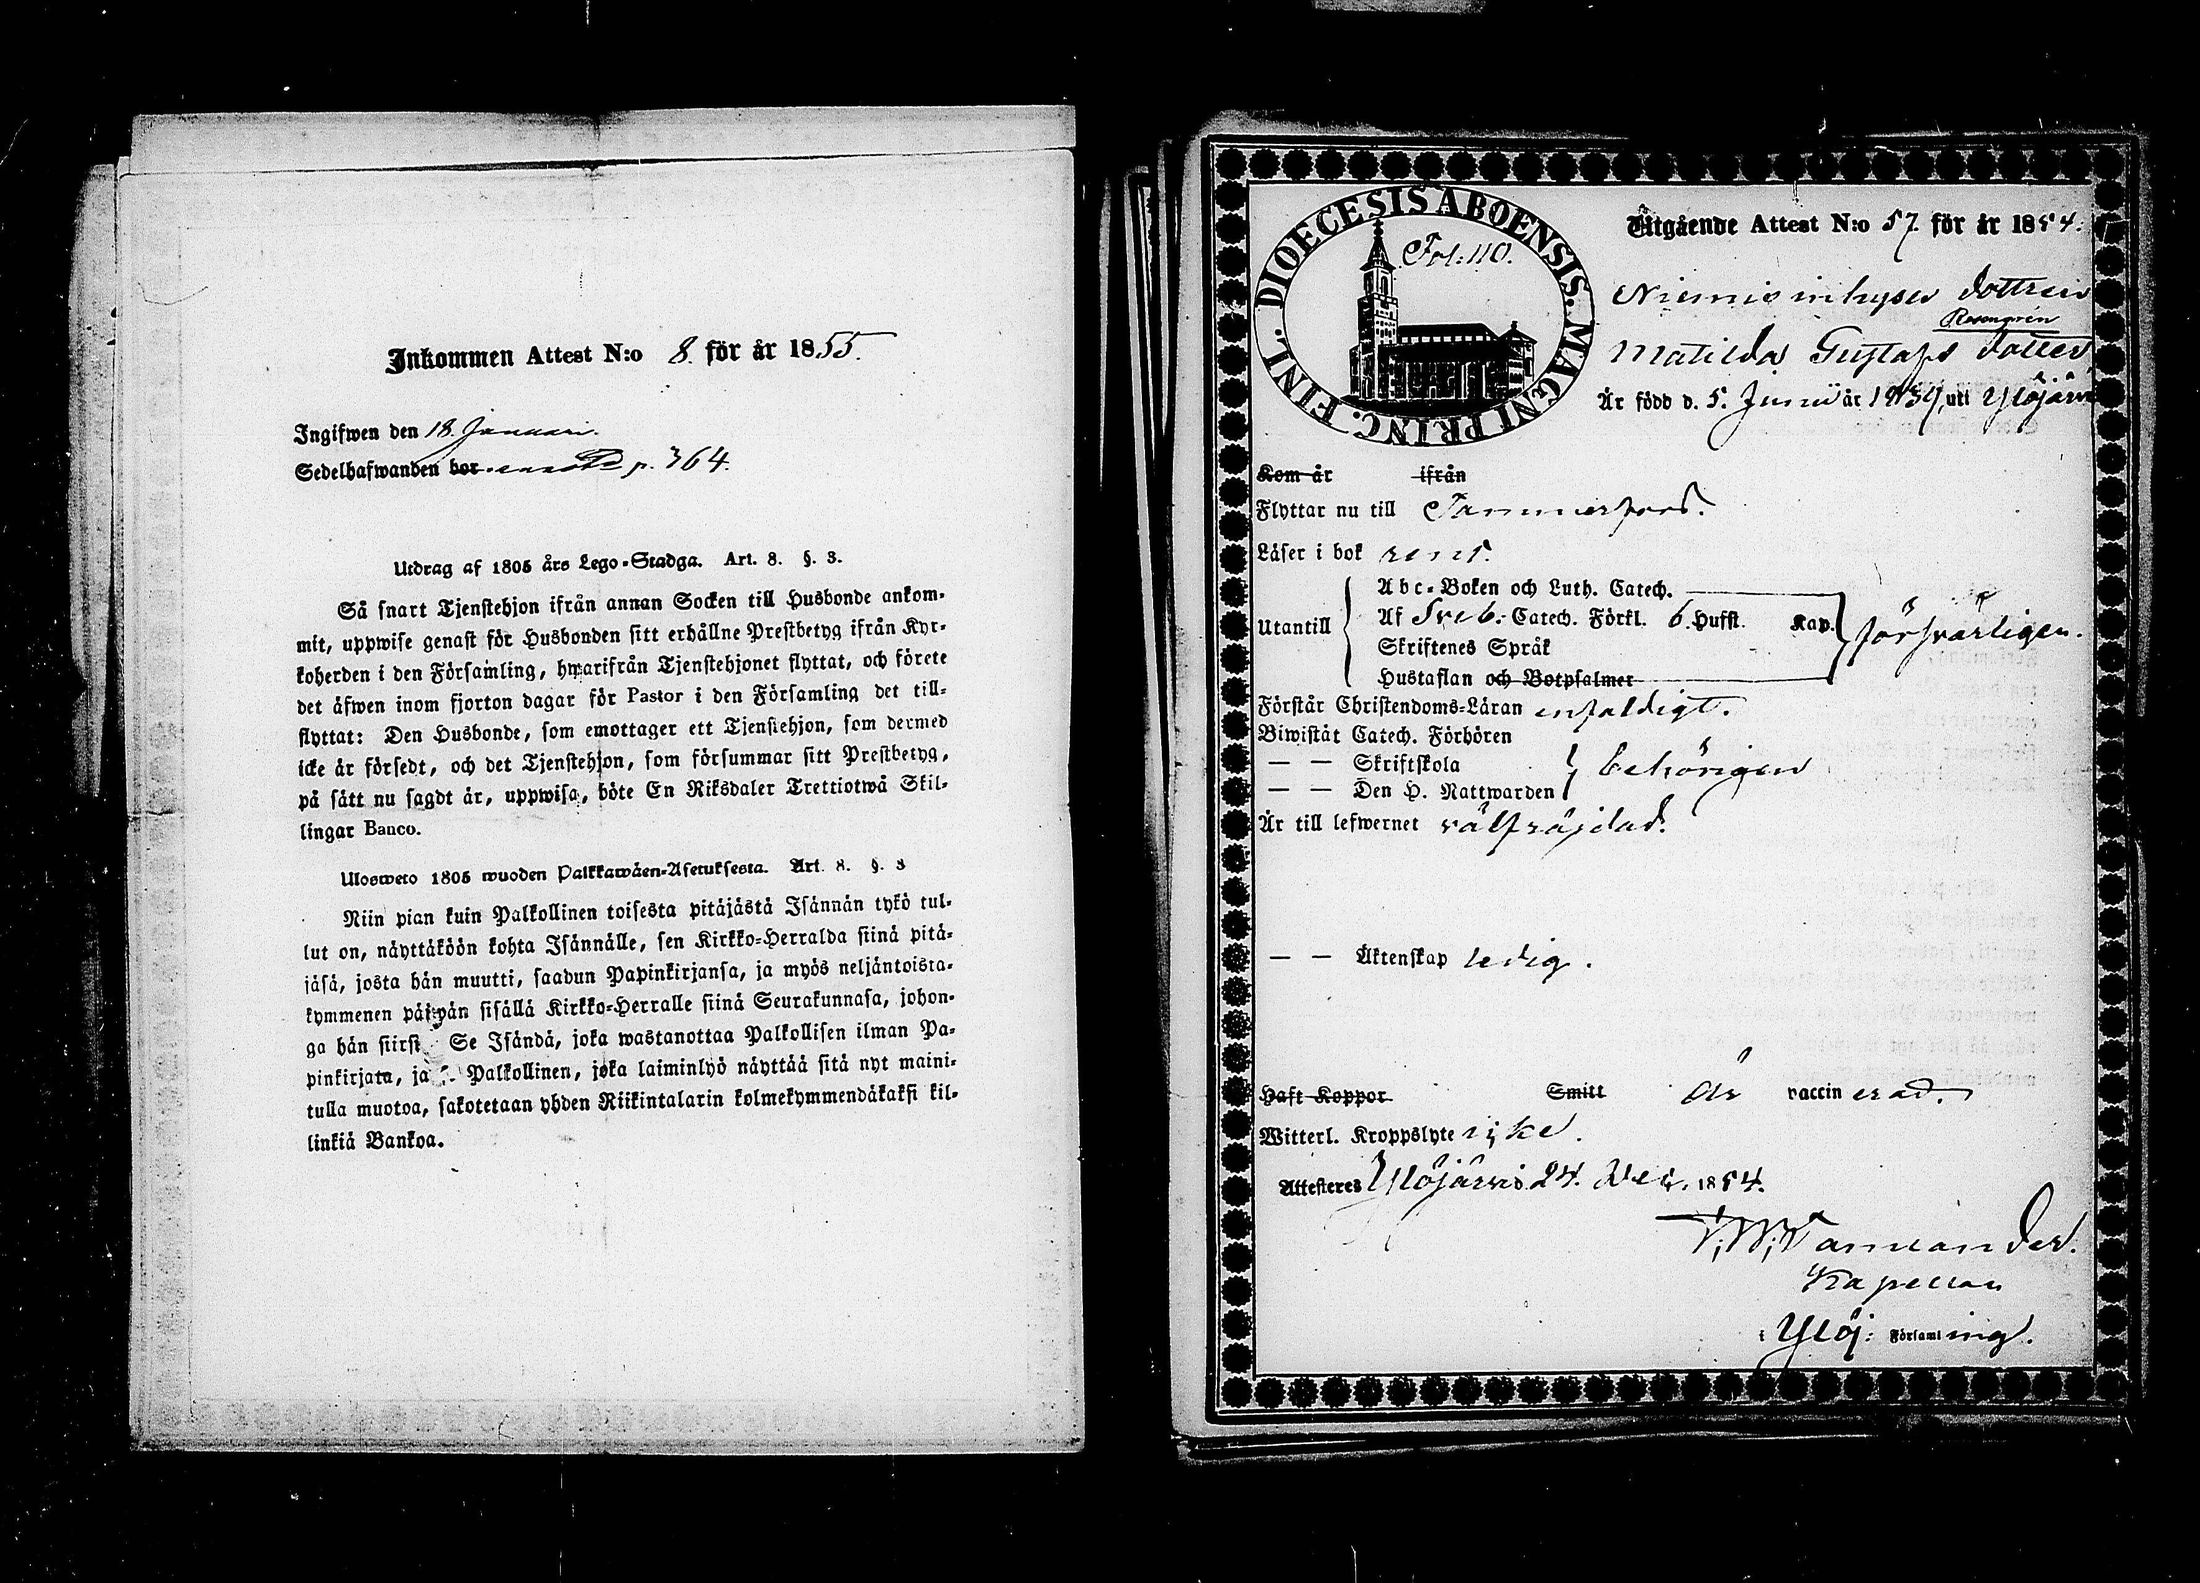 Inkommen Attest N:o 8. för år 1855.
Ingifwen den 18. Januari.
Sedelhafwanden bor p. 364.
Utdrag af 1805 års Lego-Stadga. Art. 8. §. 3.
Så snart Tjenstehjon ifrån annan Socken till Husbonde ankom-
mit, uppwise genast för Husbonden sitt erhållne Prestbetyg ifrån Kyr-
koherden i den Församling, hwarifrån Tjenstehjonet flyttat, och förete
det äfwen inom fjorton dagar för Pastor i den Församling det till-
flyttat: Den Husbonde, som emottager ett Tjenstehjon, som dermed
icke är försedt, och det Tjenstehjon, som försummar sitt Prestbetyg,
på sätt nu sagdt är, uppwisa, böte En Riksdaler Trettiotwå Skil-
lingar Banco.
Ulosweto 1805 wuoden Palkkawäen-Asetuksesta. Art. 8. §. 3
Niin pian kuin Palkollinen toisesta pitäjästä Isännän tykö tul-
lut on, näyttäköön kohta Isännälle, sen Kirkko-Herralda siinä pitä-
jäsä, josta hän muutti, saadun Papinkirjansa, ja myös neljäntoista-
kymmenen päiwän sisällä Kirkko-Herralle siinä Seurakunnasa, johon-
ga hän siirsi Se Isändä, joka wastanottaa Palkollisen ilman Pa-
pinkirjata, ja Palkollinen, joka laiminlyö näyttää sitä nyt maini-
tulla muotoa, sakotetaan yhden Riikintalarin kolmekymmendäkaksi kil-
linkiä Bankoa.
DIOECESIS ABOENSIS. MAGNI PRINC. FINL.
Fol: 110.
Utgående Attest N:o 57 för år 1854.
Niemis inhyses dottren
Rosengren
Matilda Gustafs dotter
Är född d. 5. Junii år 1834, uti Ylöjärvi
Kom år ifrån
Flyttar nu till Tammerfors.
Läser i bok rent.
Utantill
Abc-Boken och Luth. Catech.
Af Sveb. Catech. Förkl. 6. Hufst. Kap.
Skriftenes Språk
Hustaflan och Botpsalmer
försvarligen.
Förstår Christendoms-Läran enfaldigt.
Biwistat Catech. Förhören
— — Skriftskola
— — Den H. Nattwarden
behörigen
Är till lefwernet välfräjdad.
— — Äktenskap ledig.
Haft Koppor Smitt är vaccinerad.
Witterl. Kroppslyte icke.
Attesteres Ylöjärvi d. 24. Dec. 1854.
Kapellan
i Ylöj: Församling.